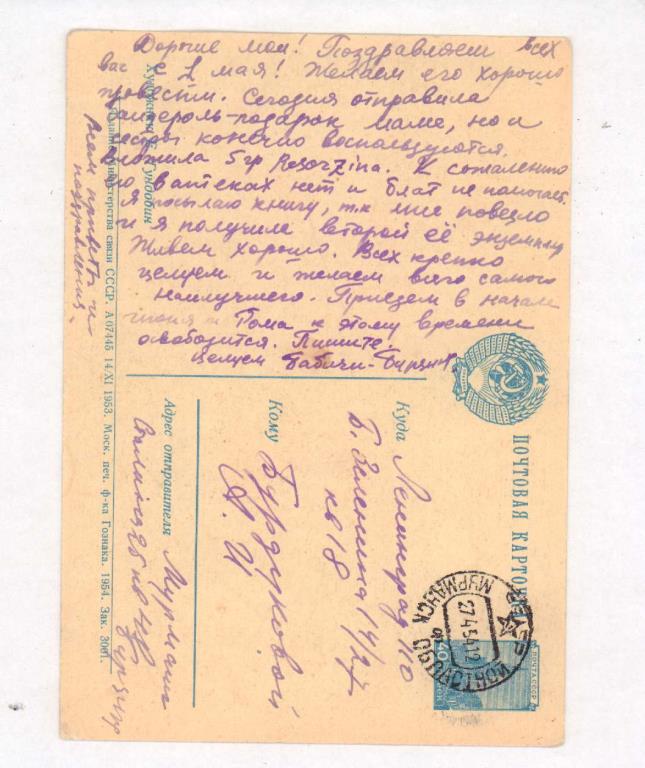 Дорогие мои! Поздравляем всех
вас с 1 мая! Желаем его хорошо
провести. Сегодня отправила
бандероль-подарок маме, но и
сестры конечно воспользуются.
вложила 5 гр Resorzina. К сожалению
в аптеках нет и блат не помогает.
Я посылаю книгу, т.к мне повезло
и я получила второй её экземпляр
Живем хорошо. Всех крепко
целуем и желаем всего самого
наилучшего. Приедем в начале
июня и Тома к этому времени
освободится. Пишите.
Целуем Бабичи-
Всем приветы и
поздравления.
Художник Гундобин
министерства связи СССР. А 07445 14/XI 1953. Моск. печ. ф-ка Гознака. 1954. Зак. 3061.
ПОЧТОВАЯ КАРТОЧКА
Куда Ленинград 110
Б. Зеленина 14/27
кв 18
Кому Бурдуковой
А. И
Адрес отправителя Мурманск
Сталина 25 кв
МУРМАНСК
27 4 54 12
ПОЧТА СССР
40